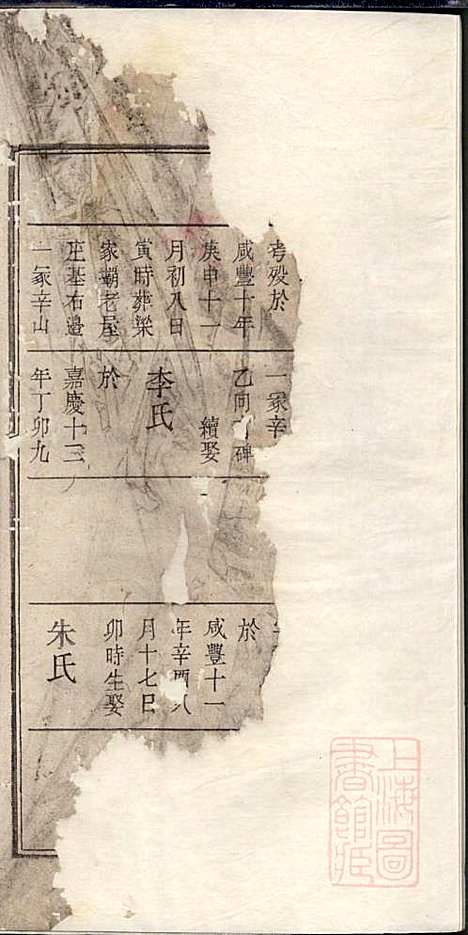 考歿於
咸豐十年
庚申十一
月初八日
寅時葬梁
家霸老屋
庄基右邊
一冢辛山
一冢辛
乙向 碑
續娶
李氏
於
嘉慶十二
年丁卯九
於
咸豐十一
年辛酉八
月十七巳
卯時生娶
朱氏
上海圖
書館藏